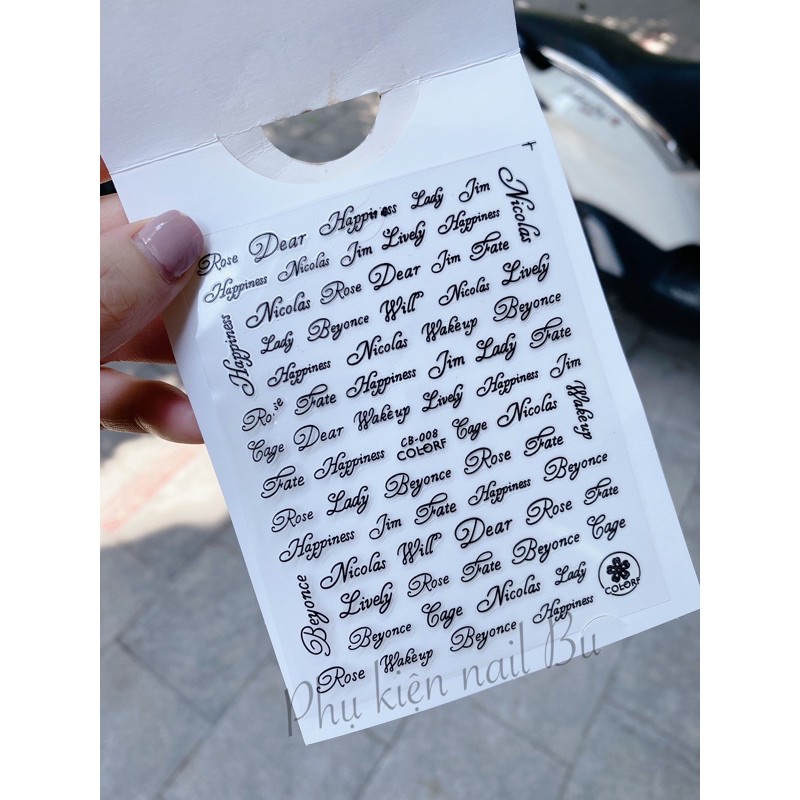 Rose Dear Happiness Lady Jim Nicolas
Happiness Nicolas Jim Lively Happiness
Nicolas Rose Dear Jim Fate
Happiness Lady Beyonce Will Nicolas Lively
Happiness Nicolas Wakeup Beyonce
Rose Fate Happiness Jim Lady Fate
Cage Dear Wakeup Lively Happiness Jim
Fate Happiness CB-008 Cage Nicolas Wakeup
COLORF
Rose Lady Beyonce Rose Fate
Happiness Jim Fate Happiness Beyonce
Nicolas Will Dear Rose Fate
Beyonce Lively Rose Fate Beyonce Cage
Beyonce Cage Nicolas Lady COLORF
Rose Wakeup Beyonce Happiness
Phụ kiện nail Bu